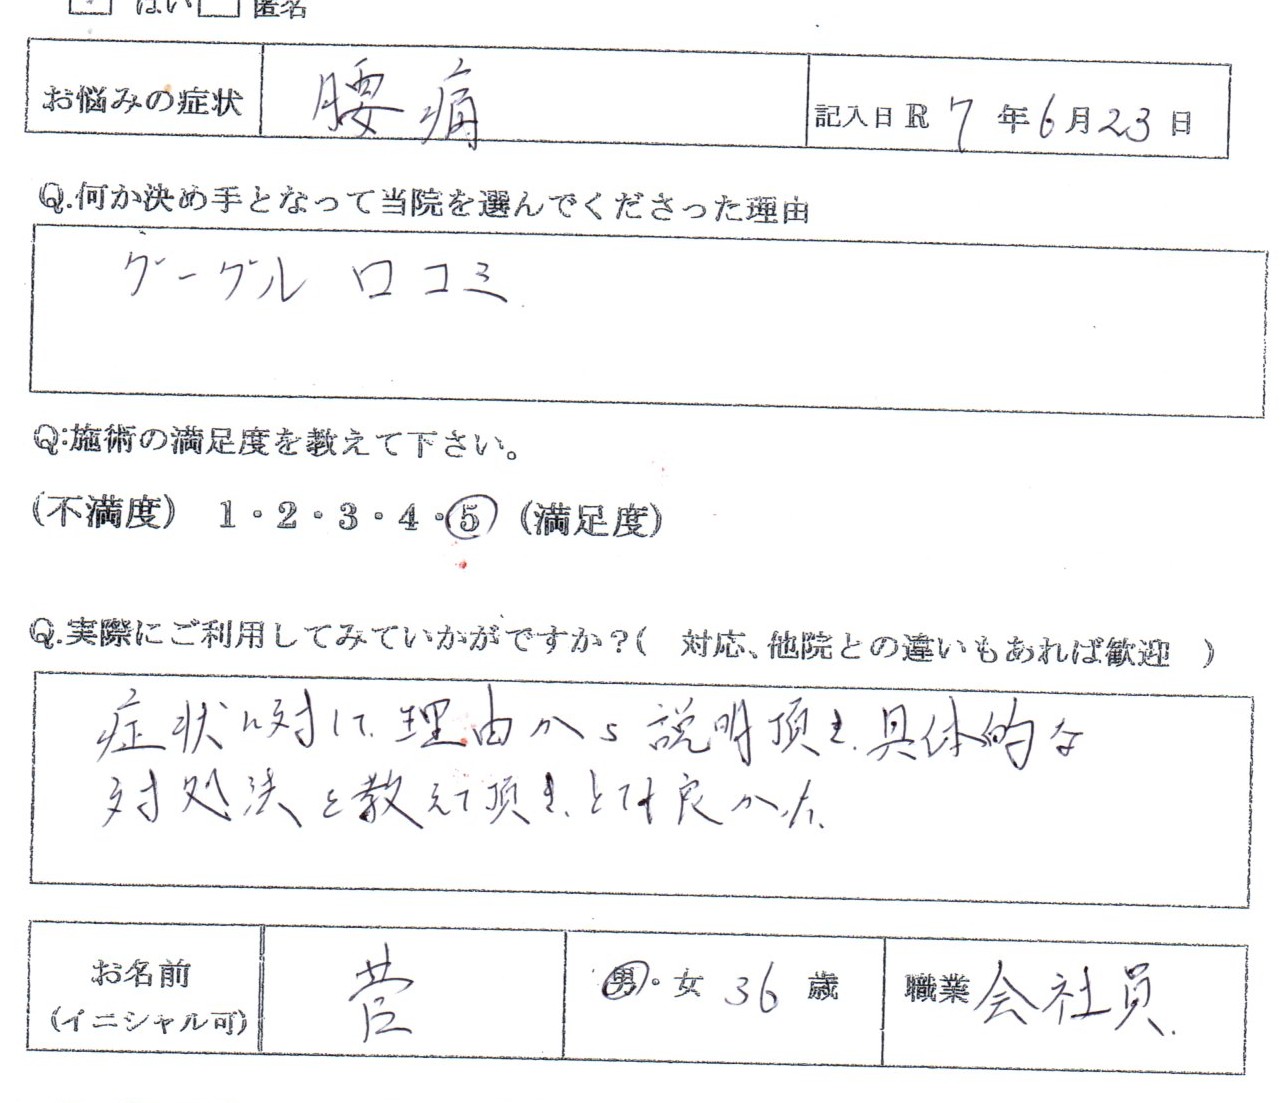 はい 匿名
お悩みの症状 腰痛 記入日 R 7 年 6 月 23 日
Q.何か決め手となって当院を選んでくださった理由
グーグル 口コミ
Q:施術の満足度を教えて下さい。
(不満度) 1・2・3・4・5 (満足度)
Q.実際にご利用してみていかがですか？( 対応、他院との違いもあれば歓迎 )
症状に対して、理由から説明頂き、具体的な
対処法を教えて頂き、とても良かった、
お名前 菅 男・女 36 歳 職業 会社員.
(イニシャル可)